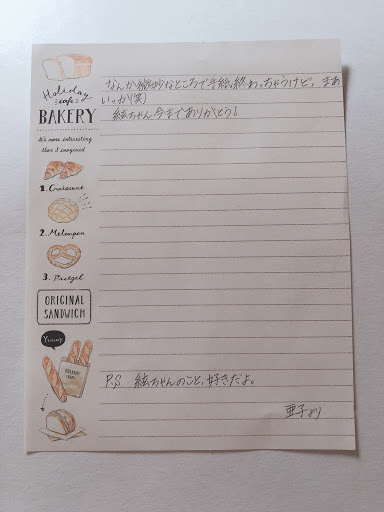 Holiday
cafe
BAKERY
It's more interesting
than I imagined
1. Croissant
2. Melonpan
3. Pretzel
ORIGINAL
SANDWICH
Yummy
なんか微妙なところで手紙終わっちゃうけど、まあ
いっか(笑)
絃ちゃん今までありがとう!
P.S 絃ちゃんのこと、好きだよ。
亜子より